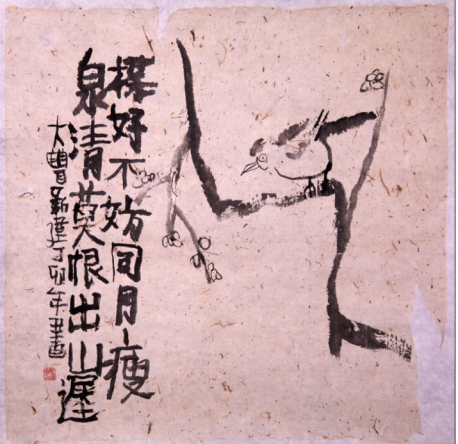 楳好不妨同月瘦
泉清莫恨出山遲
大 丁卯年畫